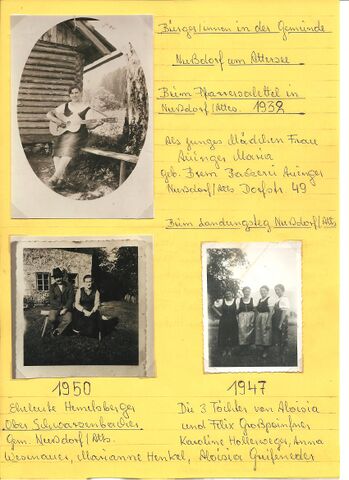 Bürger/innen in der Gemeinde
Nußdorf am Attersee
Beim Pfarrersalettel in
Nußdorf/Atts. 1932
Als junges Mädchen Frau
Auinger Maria
geb. Brem Bäckerei Auinger
Nußdorf/Atts Dorfstr 49
Beim Landungsteg Nußdorf/Atts
1950
1947
Eheleute Hemetsberger
Ober Schwarzenbacher
Gem. Nußdorf/Atts.
Die 3 Töchter von Aloisia
und Felix Großpointner
Karoline Hollerweger, Anna
Wesenauer, Marianne Henkel, Aloisia Greifeneder